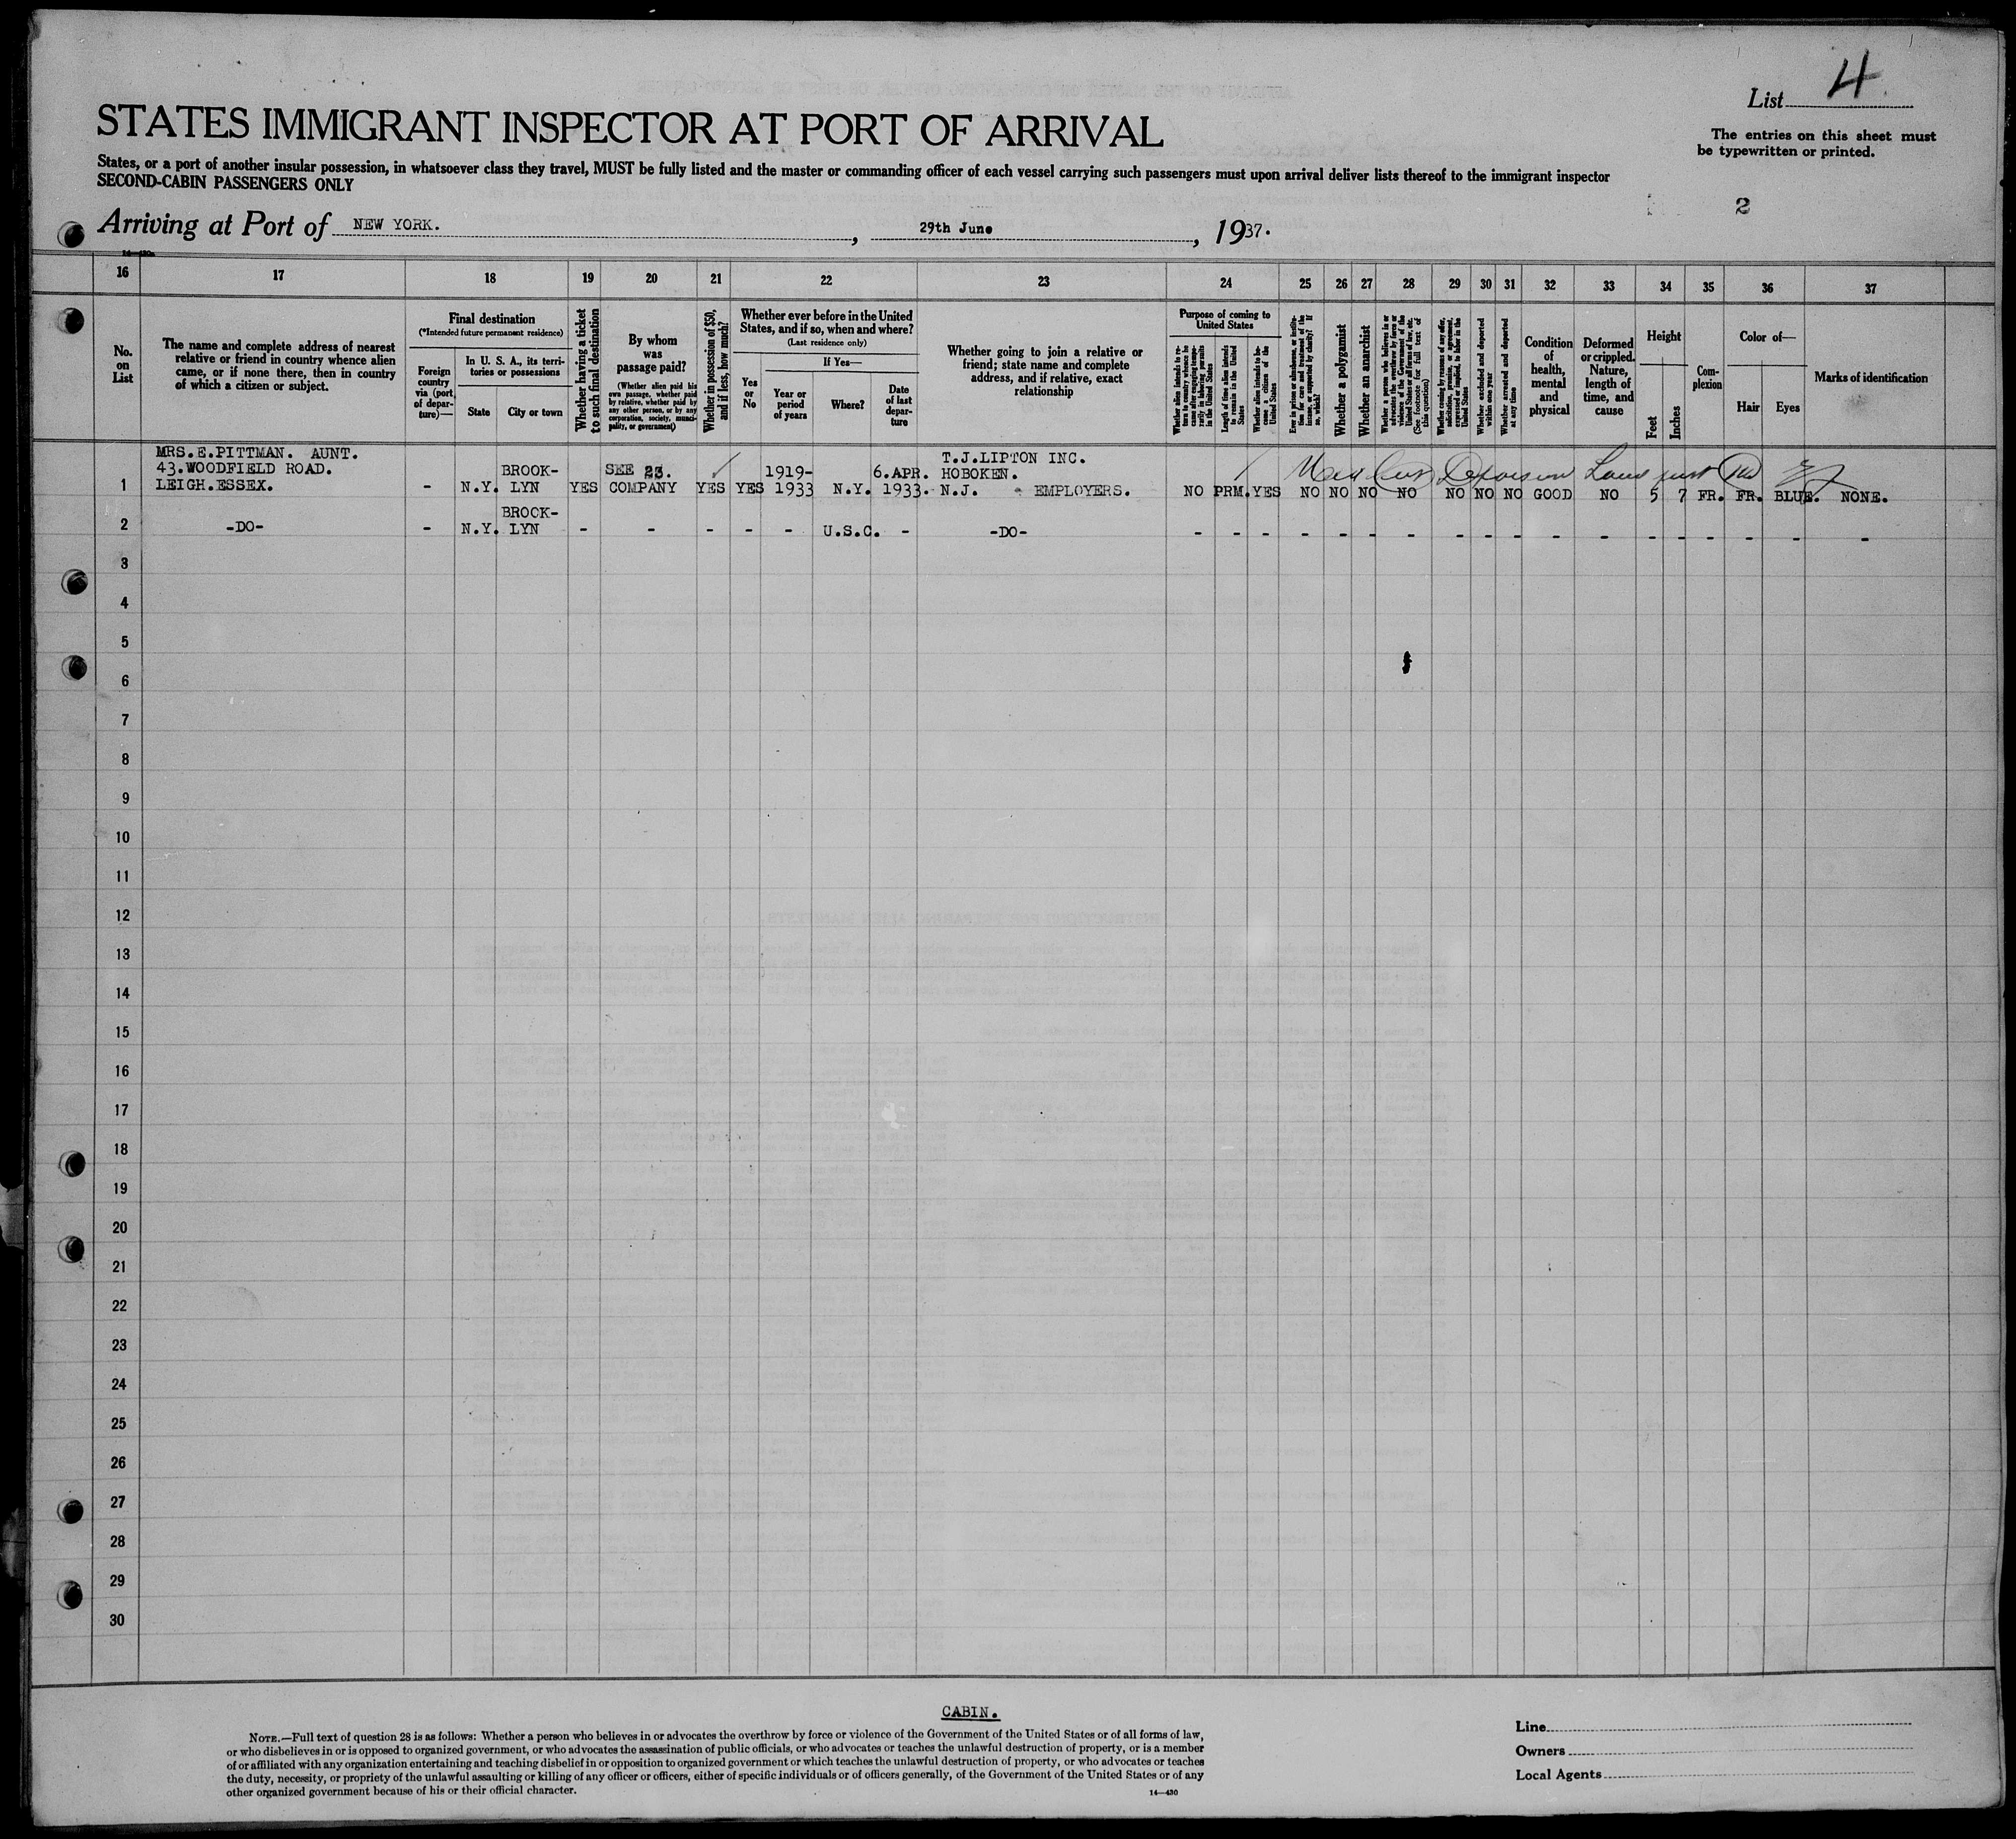 List 4
STATES IMMIGRANT INSPECTOR AT PORT OF ARRIVAL
The entries on this sheet must
be typewritten or printed.
States, or a port of another insular possession, in whatsoever class they travel, MUST be fully listed and the master or commanding officer of each vessel carrying such passengers must upon arrival deliver lists thereof to the immigrant inspector
SECOND-CABIN PASSENGERS ONLY
2
Arriving at Port of NEW YORK. , 29th June , 1937.
16 17 18 19 20 21 22 23 24 25 26 27 28 29 30 31 32 33 34 35 36 37
No.
on
List
The name and complete address of nearest
relative or friend in country whence alien
came, or if none there, then in country
of which a citizen or subject.
Final destination
(*Intended future permanent residence)
Foreign
country
via (port
of depar-
ture)—
In U. S. A., its terri-
tories or possessions
State City or town
Whether having a ticket
to such final destination
By whom
was
passage paid?
(Whether alien paid his
own passage, whether paid
by relative, whether paid by
any other person, or by any
corporation, society, munici-
pality, or government)
Whether in possession of $50,
and if less, how much?
Whether ever before in the United
States, and if so, when and where?
(Last residence only)
Yes
or
No
If Yes—
Year or
period
of years
Where?
Date
of last
depar-
ture
Whether going to join a relative or
friend; state name and complete
address, and if relative, exact
relationship
Purpose of coming to
United States
Whether alien intends to re-
turn to country whence he
came after engaging tempo-
rarily in laboring pursuits
in the United States
Length of time alien intends
to remain in the United
States
Whether alien intends to be-
come a citizen of the
United States
Ever in prison or almshouse, or institu-
tion for care and treatment of the
insane, or supported by charity? If
so, which?
Whether a polygamist
Whether an anarchist
Whether a person who believes in or
advocates the overthrow by force or
violence of the Government of the
United States or all forms of law, etc.
(See footnote for full text of
this question)
Whether coming by reason of any offer,
solicitation, promise, or agreement,
expressed or implied, to labor in the
United States
Whether excluded and deported
within one year
Whether arrested and deported
at any time
Condition
of
health,
mental
and
physical
Deformed
or crippled.
Nature,
length of
time, and
cause
Height
Feet
Inches
Com-
plexion
Color of—
Hair Eyes
Marks of identification
MRS.E.PITTMAN. AUNT. T.J.LIPTON INC.
43.WOODFIELD ROAD. BROOK- SEE 23. 1919- 6.APR. HOBOKEN.
1 LEIGH.ESSEX. - N.Y. LYN YES COMPANY YES YES 1933 N.Y. 1933. N.J. EMPLOYERS. NO PRM. YES NO NO NO NO NO NO NO GOOD NO 5 7 FR. FR. BLUE. NONE.
BROOK-
2 -DO- - N.Y. LYN - - - - - U.S.C. - -DO- - - - - - - - - - - - - - - - - - -
3
4
5
6
7
8
9
10
11
12
13
14
15
16
17
18
19
20
21
22
23
24
25
26
27
28
29
30
CABIN.
NOTE.—Full text of question 28 is as follows: Whether a person who believes in or advocates the overthrow by force or violence of the Government of the United States or of all forms of law,
or who disbelieves in or is opposed to organized government, or who advocates the assassination of public officials, or who advocates or teaches the unlawful destruction of property, or is a member
of or affiliated with any organization entertaining and teaching disbelief in or opposition to organized government or which teaches the unlawful destruction of property, or who advocates or teaches
the duty, necessity, or propriety of the unlawful assaulting or killing of any officer or officers, either of specific individuals or of officers generally, of the Government of the United States or of any
other organized government because of his or their official character.
14—430
Line
Owners
Local Agents